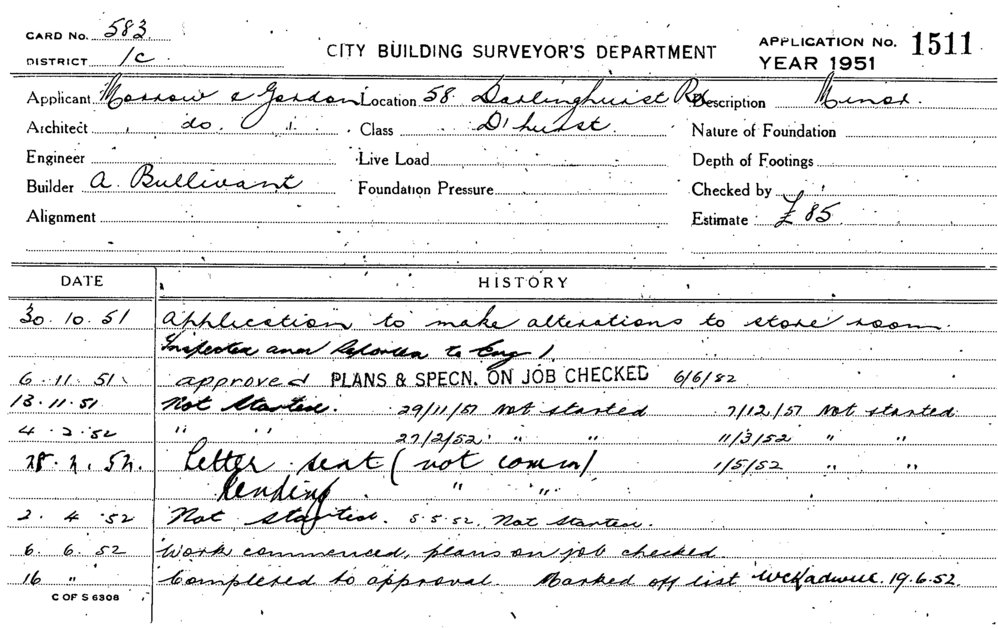 CARD No. 583
DISTRICT 1c
CITY BUILDING SURVEYOR'S DEPARTMENT
APPLICATION No. 1511
YEAR 1951
Applicant Morrow & Gordon Location 58 Darlinghurst Rd Description Minor.
Architect " do. " Class D'hurst Nature of Foundation
Engineer Live Load Depth of Footings
Builder A. Bullivant Foundation Pressure Checked by
Alignment Estimate £85
DATE HISTORY
30.10.51 Application to make alterations to store room.
Inspected and Reported to Eng 1.
6.11.51 approved PLANS & SPECN. ON JOB CHECKED 6/6/52
13.11.51 Not Started. 29/11/51 Not started 7/12/51 Not started
4.2.52 " " 27/2/52 " " 11/3/52 " "
28.2.52. Letter sent (not comm) 1/5/52 " "
Pending " "
2.4.52 Not started. 5.5.52. Not Started.
6.6.52 Work commenced, plans on job checked.
16 " Completed to approval. Marked off list 19.6.52.
C OF S 6308